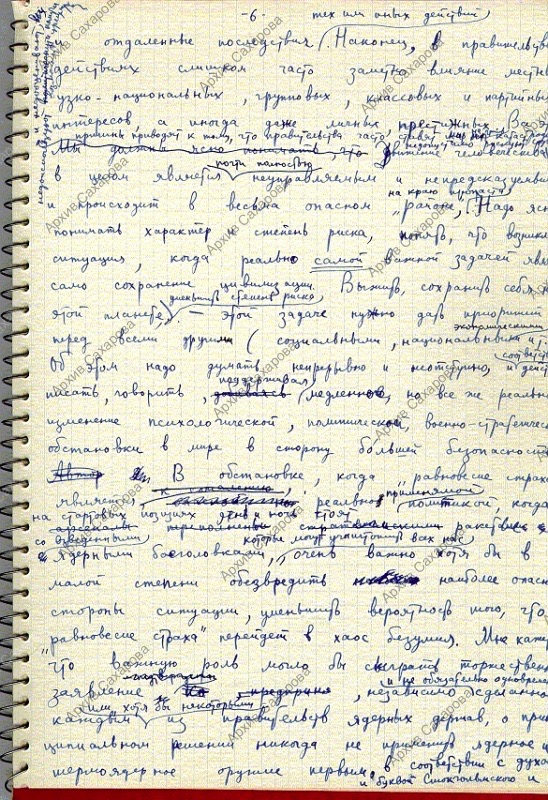 -6-
тех или иных действий
отдаленные последствия. Наконец, в правительстве
действиях слишком часто заметно влияние местных
узко-национальных, групповых, классовых и партийных
интересов а иногда даже личных, престижных
причины приводят к тому, что правительства часто ставят мир
Мы должны ясно понимать, что движение человечества
почти полностью
в целом является неуправляемым и непредсказуемым
на краю пропасти
и происходит в весьма опасном районе. Надо ясно
понимать характер и степень риска, понять, что возникла
ситуация, когда реально самой важной задачей явл
само сохранение цивилизации. Выжить, сохранить себя на
уменьшить степень риска
этой планете, — этой задаче нужно дать приоритет
экономическими
перед всеми другими (социальными, национальными и
Об этом надо думать непрерывно и неотступно,
поддерживая
писать, говорить, медленное, но все же реальное
изменение психологической, политической, военно-стратегической
обстановки в мире в сторону большей безопасности
Автор В обстановке, когда "равновесие страха"
к сожалению, применяемой
является, реально политикой, когда
на стартовых позициях день и ночь стоят
арсеналы переполнены стратегическими ракетами
со сведенными которые могут уничтожить всех нас
ядерными боеголовками, очень важно хотя бы в
малой степени обезвредить наиболее опасные
стороны ситуации, уменьшить вероятность того, что
"равновесие страха" перейдет в хаос безумия. Мне кажется
что важную роль могло бы сыграть торжественное
и не обязательно одновременно
заявление, независимо сделанное
или хотя бы некоторыми
каждым из правительств ядерных держав, о прин
ципиальном решении никогда не применять ядерное и
термоядерное оружие первым, в соответствии с духом
и буквой Стокгольмского и
Архив Сахарова